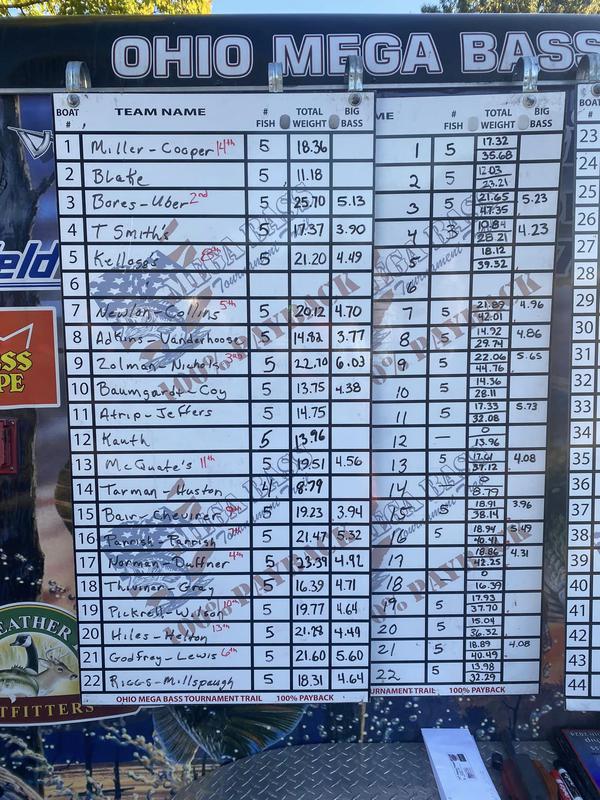 OHIO MEGA BASS
BOAT # TEAM NAME # FISH TOTAL WEIGHT BIG BASS
1 Miller-Cooper 14th 5 18.36
2 Blake 5 11.18
3 Bores-Uber 2nd 5 25.70 5.13
4 T Smith's 5 17.37 3.90
5 Kellogg's 5 21.20 4.49
6
7 Newlon-Collins 5th 5 20.12 4.70
8 Adkins-Vanderhoose 5 14.82 3.77
9 Zolman-Nichols 3rd 5 22.70 6.03
10 Baumgardt-Coy 5 13.75 4.38
11 Atrip-Jeffers 5 14.75
12 Kauth 5 13.96
13 McQuate's 11th 5 19.51 4.56
14 Tarman-Huston 4 8.79
15 Bair-Cheviner 5 19.23 3.94
16 Parrish-Parrish 5 21.47 5.32
17 Norman-Duffner 4th 5 23.39 4.92
18 Thiviner-Gray 5 16.39 4.71
19 Pickrell-Wilson 10th 5 19.77 4.64
20 Hiles-Helton 13th 5 21.28 4.49
21 Godfrey-Lewis 6th 5 21.60 5.60
22 Riggs-Millspaugh 5 18.31 4.64
OHIO MEGA BASS TOURNAMENT TRAIL 100% PAYBACK
ME # FISH TOTAL WEIGHT BIG BASS
1 5 17.32 35.68
2 5 12.03 23.21
3 5 21.65 47.35 5.23
4 3 10.84 28.21 4.23
5 18.12 39.32
6
7 5 21.89 42.01 4.96
8 5 14.92 29.74 4.86
9 5 22.06 44.76 5.65
10 5 14.36 28.11
11 5 17.33 32.08 5.73
12 — 0 13.96
13 5 17.61 37.12 4.08
14 0 8.79
15 5 18.91 38.14 3.96
16 5 18.94 40.41 5.49
17 18.86 42.25 4.31
18 0 16.39
19 5 17.93 37.70
20 5 15.04 36.32
21 5 18.89 40.49 4.08
22 5 13.98 32.29
URNAMENT TRAIL 100% PAYBACK
23
24
25
26
27
28
29
30
31
32
33
34
35
36
37
38
39
40
41
42
43
44
MEGA BASS
Tournament
100% PAYBACK
eld
SS
PE
EATHER
TFITTERS